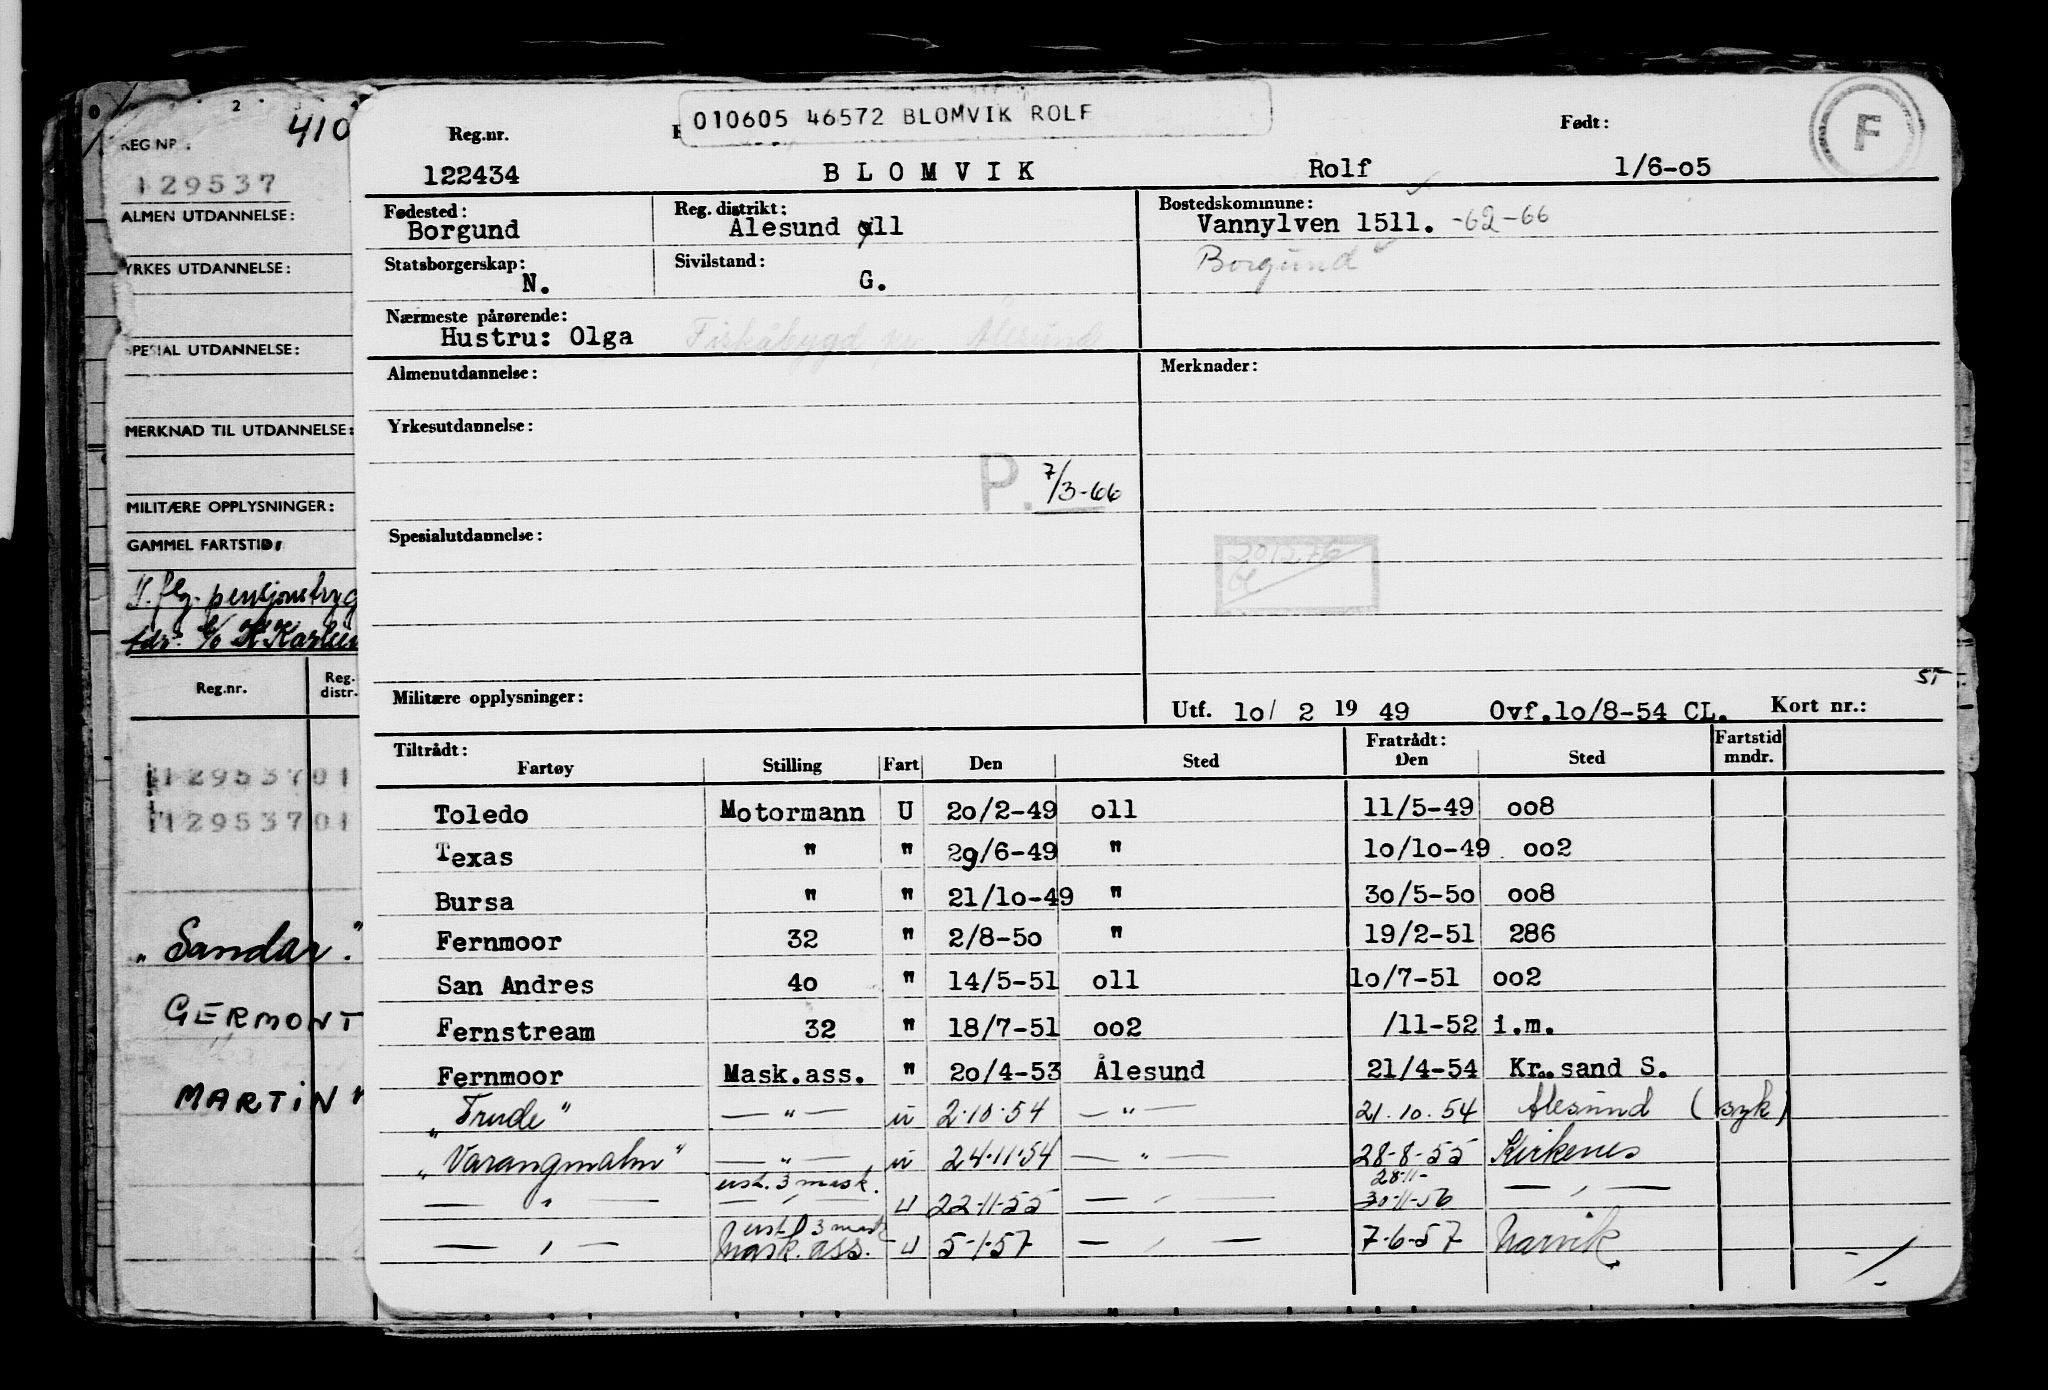 010605 46572 BLOMVIK ROLF
Reg.nr. Født:
122434 BLOMVIK Rolf 1/6-05
F
Fødested: Borgund
Reg. distrikt: Ålesund 011
Bostedskommune: Vannylven 1511. -62-66
Borgund
Statsborgerskap: N.
Sivilstand: G.
Nærmeste pårørende:
Hustru: Olga Fiskåbygd pr. Ålesund
Almenutdannelse: Merknader:
Yrkesutdannelse:
P. 7/3-66
Spesialutdannelse:
20.12.76
Militære opplysninger:
ST
Utf. 10/ 2 19 49 Ovf.10/8-54 CL. Kort nr.:
Tiltrådt: Fratrådt: Fartstid
Fartøy Stilling Fart Den Sted Den Sted mndr.
Toledo Motormann U 20/2-49 011 11/5-49 008
Texas " " 29/6-49 " 10/10-49 002
Bursa " " 21/10-49 " 30/5-50 008
Fernmoor 32 " 2/8-50 " 19/2-51 286
San Andres 40 " 14/5-51 011 10/7-51 002
Fernstream 32 " 18/7-51 002 /11-52 i.m.
Fernmoor Mask.ass. " 20/4-53 Ålesund 21/4-54 Kr.sand S.
"Trude" — " — u 2.10.54 — " — 21.10.54 Ålesund (syk)
"Varangmalm" — " — u 24.11.54 — " — 28-8-55 Kirkenes
ust. 3 mask. 28-11-
— " — — " — u 22-11-55 — " — 30-11-56 — " —
ust. 3 mask
— " — Mask. ass. u 5-1-57 — " — 7-6-57 Narvik
REG NR.:
410
129537
ALMEN UTDANNELSE:
YRKES UTDANNELSE:
SPESIAL UTDANNELSE:
MERKNAD TIL UTDANNELSE:
MILITÆRE OPPLYSNINGER:
GAMMEL FARTSTID:
Reg.nr. Reg. distr.
12953701
12953701
"Sandar"
GERMONT
MARTIN"